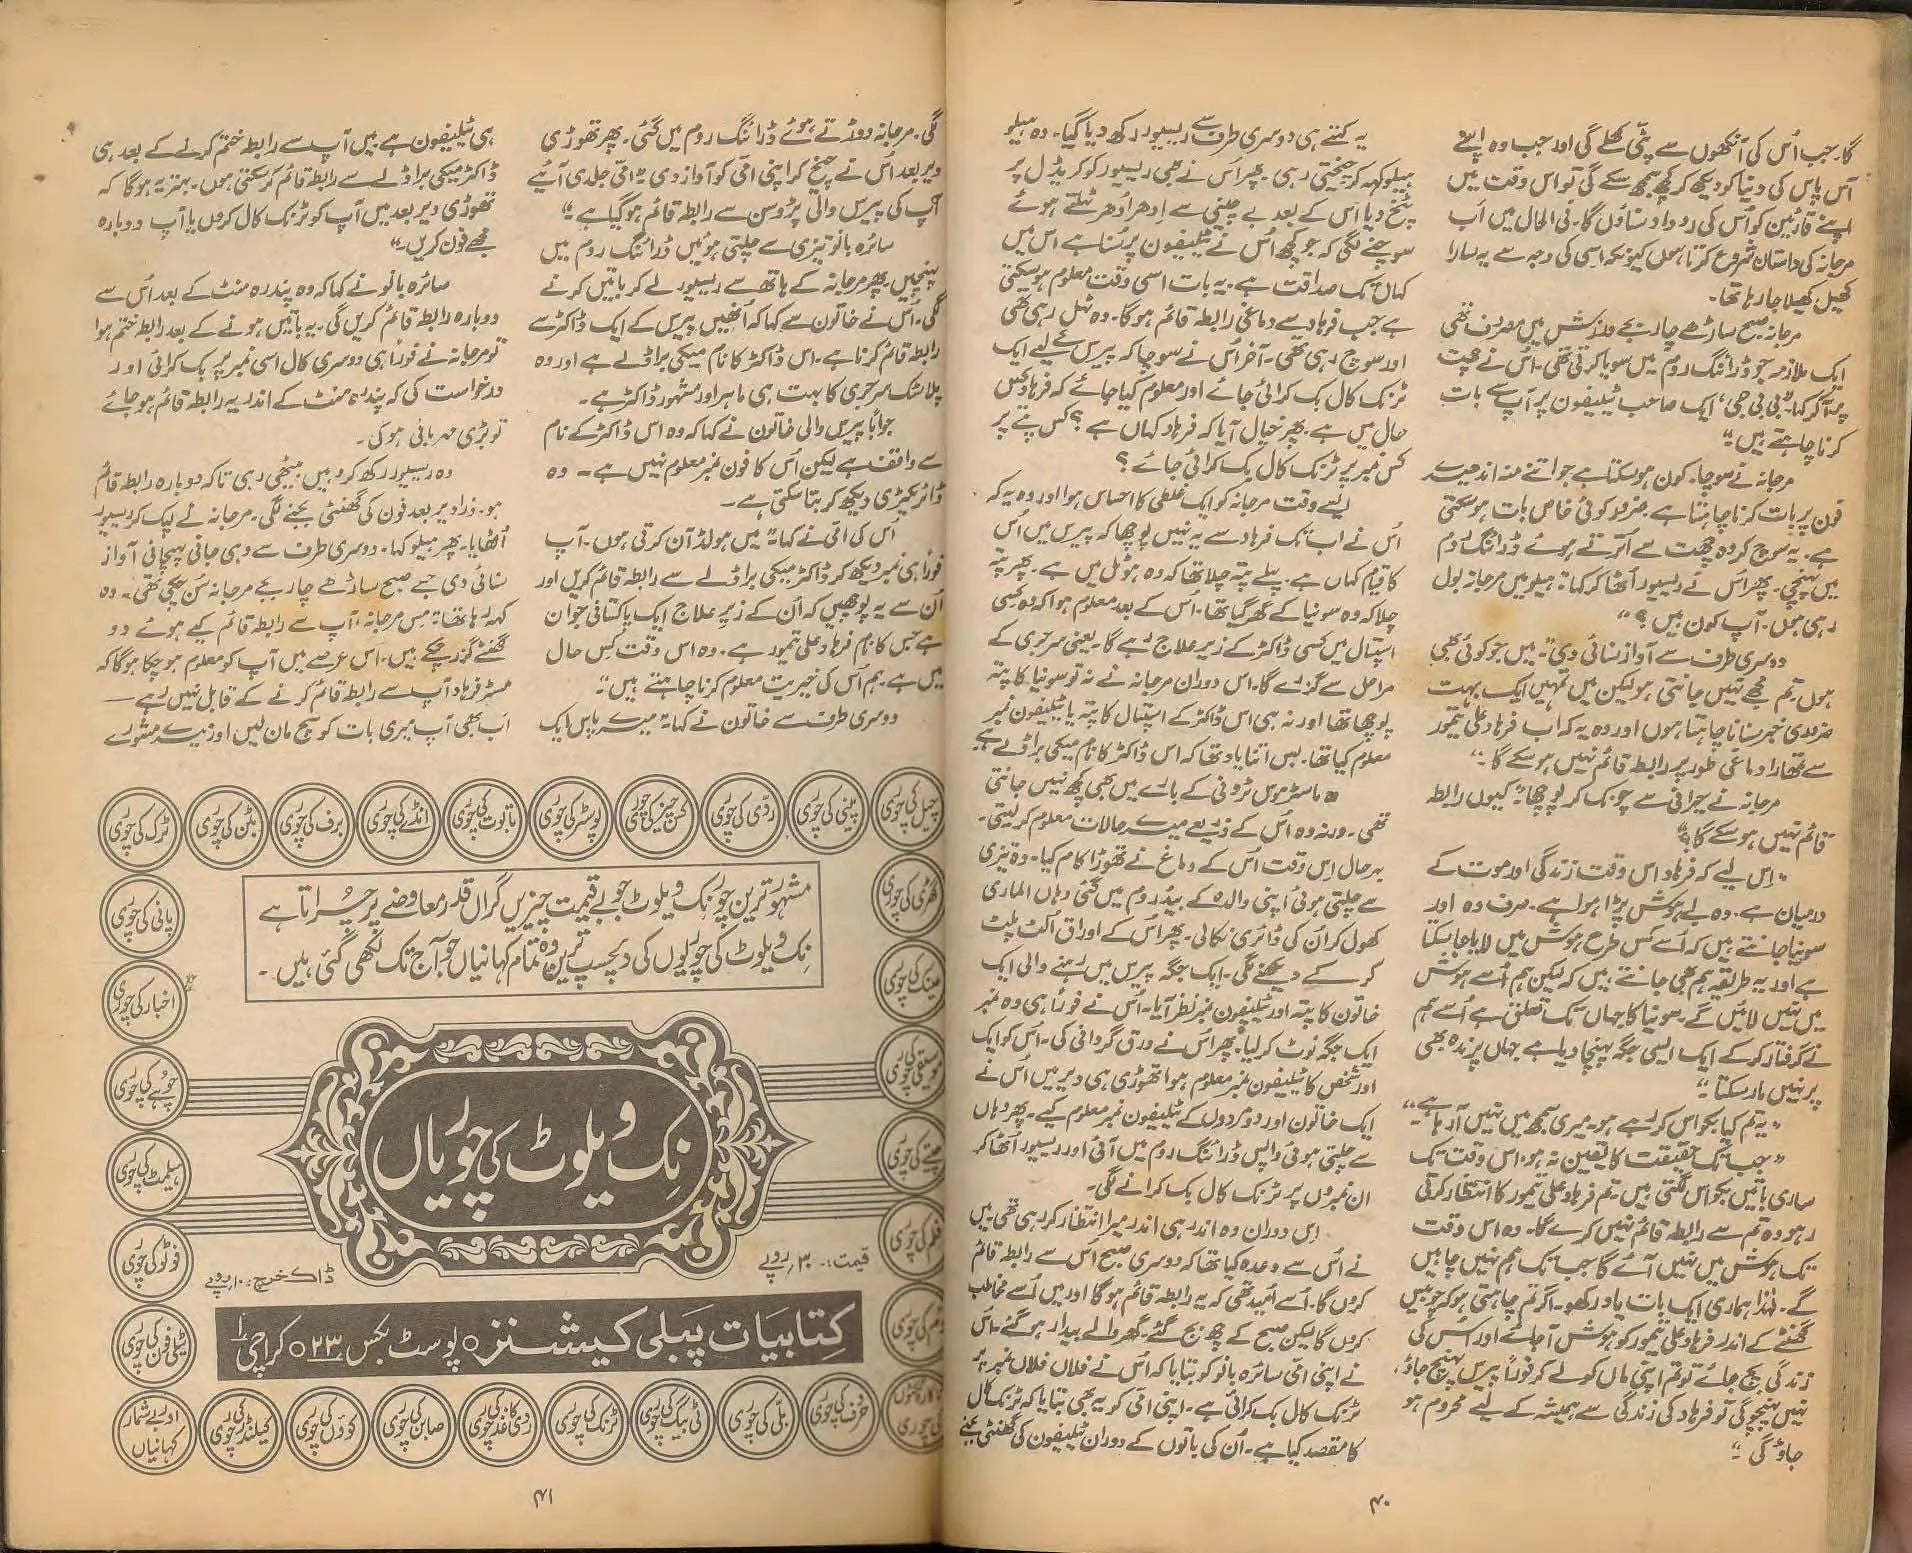 گا۔ جب اُس کی آنکھوں سے پٹی کھلے گی اور جب وہ اپنے
آس پاس کی دنیا کو دیکھ کر کچھ سمجھ سکے گی تو اس وقت میں
اپنے قارئین کو اُس کی روداد سناؤں گا۔ فی الحال میں اب
مرجانہ کی داستان شروع کرتا ہوں کیونکہ اسی کی وجہ سے یہ سارا
کھیل کھیلا جا رہا تھا۔
مرجانہ صبح ساڑھے چار بجے ورزش میں مصروف تھی
ایک ملازمہ جو ڈرائنگ روم میں سویا کرتی تھی۔ اُس نے چھت
پر آکر کہا۔ "بی بی جی! ایک صاحب ٹیلیفون پر آپ سے بات
کرنا چاہتے ہیں۔"
مرجانہ نے سوچا۔ کون ہو سکتا ہے جو اتنے منہ اندھیرے
فون پر بات کرنا چاہتا ہے۔ ضرور کوئی خاص بات ہو سکتی
ہے۔ یہ سوچ کر وہ چھت سے اُترتے ہوئے ڈرائنگ روم
میں پہنچی۔ پھر اُس نے ریسیور اُٹھا کر کہا۔ "ہیلو میں مرجانہ بول
رہی ہوں۔ آپ کون ہیں؟"
دوسری طرف سے آواز سنائی دی "میں جو کوئی بھی
ہوں تم مجھے نہیں جانتی ہو لیکن میں تمہیں ایک بہت
ضروری خبر سنانا چاہتا ہوں اور وہ یہ کہ اب فرہاد علی تیمور
سے تمھارا دماغی طور پر رابطہ قائم نہیں ہو سکے گا۔"
مرجانہ نے حیرانی سے چونک کر پوچھا "کیوں رابطہ
قائم نہیں ہو سکے گا؟"
"اِس لیے کہ فرہاد اس وقت زندگی اور موت کے
درمیان ہے۔ وہ بے ہوش پڑا ہوا ہے۔ صرف وہ اور
سونیا جانتے ہیں کہ اُسے کس طرح ہوش میں لایا جا سکتا
ہے اور یہ طریقہ ہم بھی جانتے ہیں کہ لیکن ہم اُسے ہوش
میں نہیں لائیں گے۔ سونیا کا جہاں تک تعلق ہے اُسے ہم
نے گرفتار کر کے ایک ایسی جگہ پہنچا دیا ہے جہاں پرندہ بھی
پر نہیں مار سکتا۔"
"یہ تم کیا بکواس کر رہے ہو۔ میری سمجھ میں نہیں آ رہا ہے۔"
"جب تک حقیقت کا یقین نہ ہو اس وقت تک
ساری باتیں بکواس لگتی ہیں۔ تم فرہاد علی تیمور کا انتظار کرتی
رہو وہ تم سے رابطہ قائم نہیں کرے گا۔ وہ اس وقت
تک ہوش میں نہیں آئے گا جب تک ہم نہیں چاہیں
گے۔ لہٰذا ہماری ایک بات یاد رکھو۔ اگر تم چاہتی ہو کہ چوبیس
گھنٹے کے اندر فرہاد علی تیمور کو ہوش آ جائے اور اُس کی
زندگی بچ جائے تو تم اپنی ماں کو لے کر فوراً پیرس پہنچ جاؤ،
نہیں پہنچو گی تو فرہاد کی زندگی سے ہمیشہ کے لیے محروم ہو
جاؤ گی۔"
یہ کہتے ہی دوسری طرف سے ریسیور رکھ دیا گیا۔ وہ ہیلو
ہیلو کہہ کر چیختی رہی۔ پھر اُس نے بھی ریسیور کو کریڈل پر
پٹخ دیا اس کے بعد بے چینی سے اِدھر اُدھر ٹہلتے ہوئے
سوچنے لگی کہ جو کچھ اُس نے ٹیلیفون پر سُنا ہے اس میں
کہاں تک صداقت ہے۔ یہ بات اسی وقت معلوم ہو سکتی
ہے جب فرہاد سے دماغی رابطہ قائم ہوگا۔ وہ ٹہل رہی تھی
اور سوچ رہی تھی۔ آخر اُس نے سوچا کہ پیرس کے لیے ایک
ٹرنک کال بک کرائی جائے اور معلوم کیا جائے کہ فرہاد کس
حال میں ہے۔ پھر خیال آیا کہ فرہاد کہاں ہے؟ کس پتے پر
کس نمبر پر ٹرنک کال بک کرائی جائے؟
ایسے وقت مرجانہ کو ایک غلطی کا احساس ہوا اور وہ یہ کہ
اُس نے اب تک فرہاد سے یہ نہیں پوچھا کہ پیرس میں اُس
کا قیام کہاں ہے۔ پہلے پتہ چلا تھا کہ وہ ہوٹل میں ہے۔ پھر پتہ
چلا کہ وہ سونیا کے گھر گیا تھا۔ اُس کے بعد معلوم ہوا کہ وہ کسی
اسپتال میں کسی ڈاکٹر کے زیرِ علاج رہے گا۔ یعنی سرجری کے
مراحل سے گزرے گا۔ اس دوران مرجانہ نے نہ تو سونیا کا پتہ
پوچھا تھا اور نہ ہی اس ڈاکٹر کے اسپتال کا پتہ یا ٹیلیفون نمبر
معلوم کیا تھا۔ بس اتنا یاد تھا کہ اس ڈاکٹر کا نام میکی براڈلے ہے
ماسٹر روس ٹرونی کے بارے میں بھی کچھ نہیں جانتی
تھی۔ ورنہ وہ اُس کے ذریعے میرے حالات معلوم کر لیتی۔
بہرحال اِس وقت اُس کے دماغ نے تھوڑا کام کیا۔ وہ تیزی
سے چلتی ہوئی اپنی والدہ کے بیڈ روم میں گئی وہاں الماری
کھول کر اُن کی ڈائری نکالی۔ پھر اُس کے اوراق اُلٹ پلٹ
کر کے دیکھنے لگی۔ ایک جگہ پیرس میں رہنے والی ایک
خاتون کا پتہ اور ٹیلیفون نمبر نظر آیا۔ اُس نے فوراً ہی وہ نمبر
ایک جگہ نوٹ کر لیا۔ پھر اُس نے ورق گردانی کی۔ اُس کو ایک
اور شخص کا ٹیلیفون نمبر معلوم ہوا تھوڑی ہی دیر میں اُس نے
ایک خاتون اور دو مردوں کے ٹیلیفون نمبر معلوم کیے۔ پھر وہاں
سے چلتی ہوئی واپس ڈرائنگ روم میں آئی اور ریسیور اُٹھا کر
ان نمبروں پر ٹرنک کال بک کرانے لگی۔
اِس دوران وہ اندر ہی اندر میرا انتظار کر رہی تھی میں
نے اُس سے وعدہ کیا تھا کہ دوسری صبح اُس سے رابطہ قائم
کروں گا۔ اُسے اُمید تھی کہ یہ رابطہ قائم ہوگا اور میں اُسے مخاطب
کروں گا لیکن صبح کے چھ بج گئے۔ گھر والے بیدار ہو گئے۔ اُس
نے اپنی امی سائرہ بانو کو بتایا کہ اُس نے فلاں فلاں نمبر پر
ٹرنک کال بک کرائی ہے۔ اپنی امی کو یہ بھی بتایا کہ ٹرنک کال
کا مقصد کیا ہے۔ اُن کی باتوں کے دوران ٹیلیفون کی گھنٹی بجنے
۴۰
لگی۔ مرجانہ دوڑتے ہوئے ڈرائنگ روم میں گئی۔ پھر تھوڑی
دیر بعد اُس نے چیخ کر اپنی امی کو آواز دی "امی جلدی آئیے
آپ کی پیرس والی پڑوسن سے رابطہ قائم ہو گیا ہے۔"
سائرہ بانو تیزی سے چلتی ہوئیں ڈرائنگ روم میں
پہنچیں۔ پھر مرجانہ کے ہاتھ سے ریسیور لے کر باتیں کرنے
لگی۔ اُس نے خاتون سے کہا کہ اُنھیں پیرس کے ایک ڈاکٹر سے
رابطہ قائم کرنا ہے۔ اس ڈاکٹر کا نام میکی براڈلے ہے اور وہ
پلاسٹک سرجری کا بہت ہی ماہر اور مشہور ڈاکٹر ہے۔
جواباً پیرس والی خاتون نے کہا کہ وہ اس ڈاکٹر کے نام
سے واقف ہے لیکن اُس کا فون نمبر معلوم نہیں ہے۔ وہ
ڈائریکٹری دیکھ کر بتا سکتی ہے۔
اُس کی امی نے کہا۔ "میں ہولڈ آن کرتی ہوں۔ آپ
فوراً ہی نمبر دیکھ کر ڈاکٹر میکی براڈلے سے رابطہ قائم کریں اور
اُن سے یہ پوچھیں کہ اُن کے زیرِ علاج ایک پاکستانی جوان
ہے جس کا نام فرہاد علی تیمور ہے۔ وہ اس وقت کس حال
میں ہے۔ ہم اُس کی خیریت معلوم کرنا چاہتے ہیں۔"
دوسری طرف سے خاتون نے کہا۔ "میرے پاس ایک
ہی ٹیلیفون ہے میں آپ سے رابطہ ختم کرنے کے بعد ہی
ڈاکٹر میکی براڈلے سے رابطہ قائم کر سکتی ہوں۔ بہتر یہ ہوگا کہ
تھوڑی دیر بعد میں آپ کو ٹرنک کال کروں یا آپ دوبارہ
مجھے فون کریں۔"
سائرہ بانو نے کہا کہ وہ پندرہ منٹ کے بعد اُس سے
دوبارہ رابطہ قائم کریں گی۔ یہ باتیں ہونے کے بعد رابطہ ختم ہوا
تو مرجانہ نے فوراً ہی دوسری کال اسی نمبر پر بک کرائی اور
درخواست کی کہ پندرہ منٹ کے اندر یہ رابطہ قائم ہو جائے
تو بڑی مہربانی ہوگی۔
وہ ریسیور رکھ کر وہیں بیٹھی رہی تاکہ دوبارہ رابطہ قائم
ہو۔ ذرا دیر بعد فون کی گھنٹی بجنے لگی۔ مرجانہ نے لپک کر ریسیور
اُٹھایا۔ پھر ہیلو کہا۔ دوسری طرف سے وہی جانی پہچانی آواز
سنائی دی جسے صبح ساڑھے چار بجے مرجانہ سُن چکی تھی۔ وہ
کہہ رہا تھا۔ "مس مرجانہ، آپ سے رابطہ قائم کیے ہوئے دو
گھنٹے گزر چکے ہیں۔ اس عرصے میں آپ کو معلوم ہو چکا ہوگا کہ
مسٹر فرہاد آپ سے رابطہ قائم کرنے کے قابل نہیں رہے —
اب بھی آپ میری بات کو سچ مان لیں اور میرے مشورے
چیل کی چوری
پلیٹی کی چوری
ردّی کی چوری
کس چیز کی چوری
پوسٹر کی چوری
تابوت کی چوری
انڈے کی چوری
برف کی چوری
بٹن کی چوری
ٹرک کی چوری
گھڑی کی چوری
پانی کی چوری
عینک کی چوری
اخبار کی چوری
موسیقی کی چوری
چوہے کی چوری
چھتے کی چوری
ہیلمٹ کی چوری
فلم کی چوری
فوٹو کی چوری
کی چوری
ٹیلی فون کی چوری
مشہور ترین چور نک ویلوٹ جو بے قیمت چیزیں گراں قدر معاوضے پر چُراتا ہے
نک ویلوٹ کی چوریوں کی دلچسپ ترین وہ تمام کہانیاں جو آج تک لکھی گئی ہیں۔
نِک ویلوٹ کی چوریاں
قیمت:۔ ۳۰ روپے
ڈاک خرچ: ۱۰ روپے
کتابیات پبلی کیشنز ○ پوسٹ بکس ۲۳ ○ کراچی ۱
چوری
حرف کی چوری
بلّی کی چوری
ٹی بیگ کی چوری
ٹرنک کی چوری
ردی کاغذ کی چوری
صابن کی چوری
کوّوں کی چوری
کیلنڈر کی چوری
اور بے شمار کہانیاں
۴۱